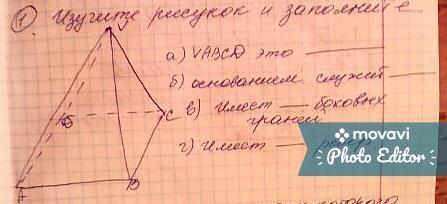 ① Изучите рисунок и заполните
а) VABCD это
б) основанием служит
в) Имеет — боковых
граней
г) Имеет —
D
C
A
B
movavi
Photo Editor